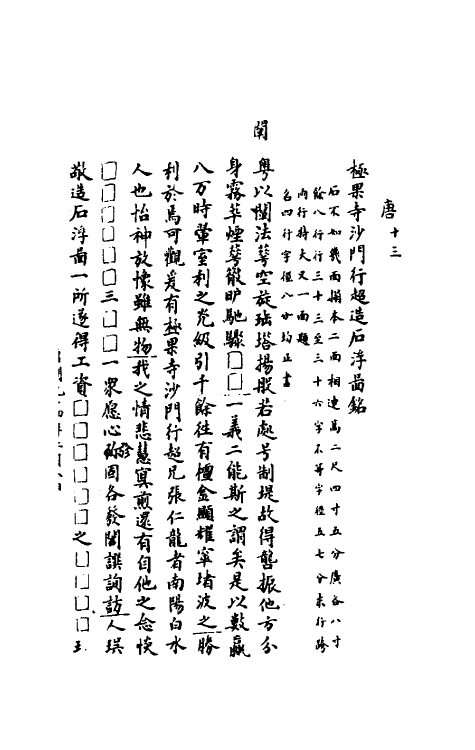 唐十三
極果寺沙門行超造石浮啚銘
石不知幾面搨本二面相連高二尺四寸五分廣各八寸
餘八行行三十三至三十六字不等字徑五七分末行跨
兩行特大又一面題
名四行字徑八分均正書
闕
粤以闡法蕚空旋珐塔揚般若處号制堤故得聲振他方分
身霧萃煙蕚徹馳驟□□一義二能斯之謂矣是以數贏
八万時暈室利之光級引千餘往有檀金顯耀窣堵波之勝
利於焉可觀爰有極果寺沙門行超兄張仁龍者南陽白水
人也怡神放懷雖無物我之情悲慧冥煎還有自他之念悏
□□□□□三□□一衆愿心弥固各發閨譔詢訪人琩
敬造石浮啚一所遂得工資□□□□□□□之□□□□玉